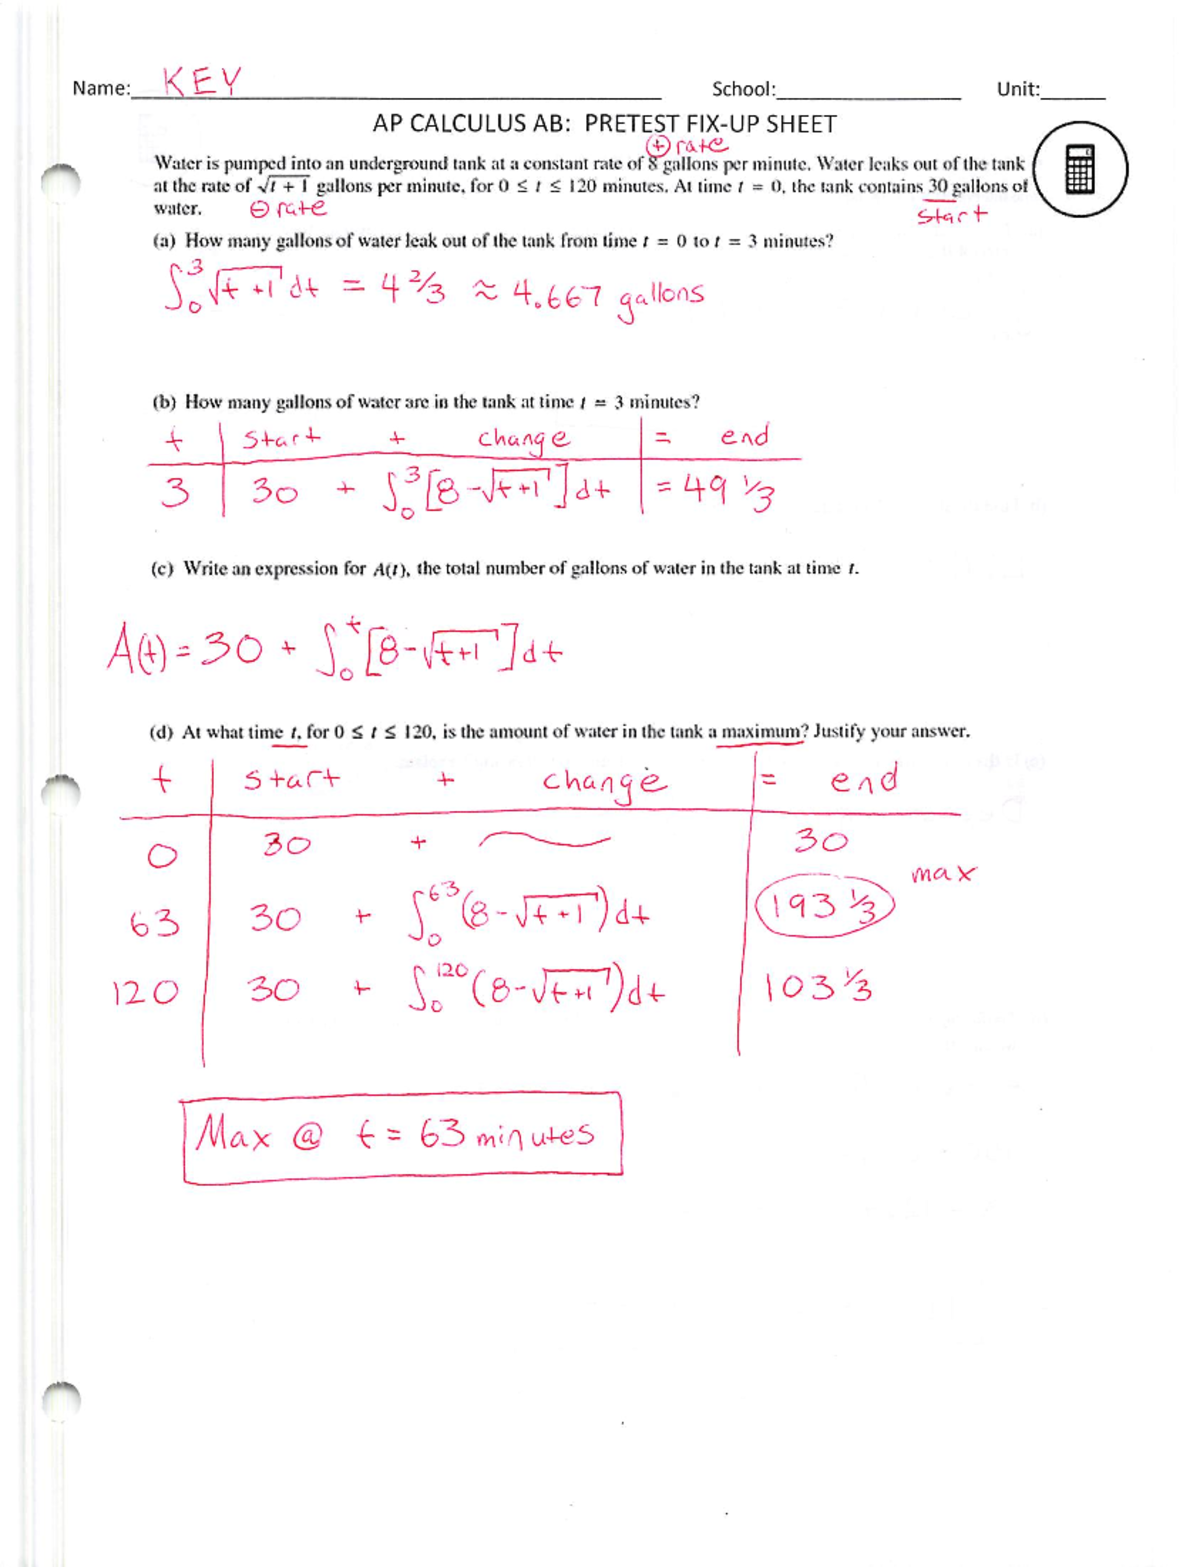 Name: KEY School: Unit:
AP CALCULUS AB: PRETEST FIX-UP SHEET
⊕ rate
Water is pumped into an underground tank at a constant rate of 8 gallons per minute. Water leaks out of the tank
at the rate of √t + 1 gallons per minute, for 0 ≤ t ≤ 120 minutes. At time t = 0, the tank contains 30 gallons of
water. ⊖ rate start
(a) How many gallons of water leak out of the tank from time t = 0 to t = 3 minutes?
∫₀³ √t+1 dt = 4 2/3 ≈ 4.667 gallons
(b) How many gallons of water are in the tank at time t = 3 minutes?
t start + change = end
3 30 + ∫₀³ [8-√t+1] dt = 49 1/3
(c) Write an expression for A(t), the total number of gallons of water in the tank at time t.
A(t) = 30 + ∫₀ᵗ [8-√t+1] dt
(d) At what time t, for 0 ≤ t ≤ 120, is the amount of water in the tank a maximum? Justify your answer.
t start + change = end
0 30 + 30
max
63 30 + ∫₀⁶³ (8-√t+1) dt 193 1/3
120 30 + ∫₀¹²⁰ (8-√t+1) dt 103 1/3
Max @ t = 63 minutes